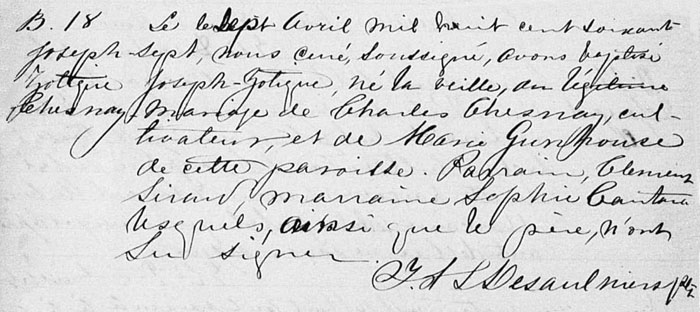 B. 18 Le sept Avril mil huit cent soixant-
Joseph- sept, nous curé, soussigné, avons baptisé
Zotique Joseph-Zotique, né la veille, du légitime
Chesnay. mariage de Charles Chesnay, cul-
tivateur, et de Marie Gunhouse
de cette paroisse. Parrain, Clement
Sirard, marraine Sophie Cantara
lesquels, ainsi que le père, n'ont
su signer.
J. A L Desaulniers ptre